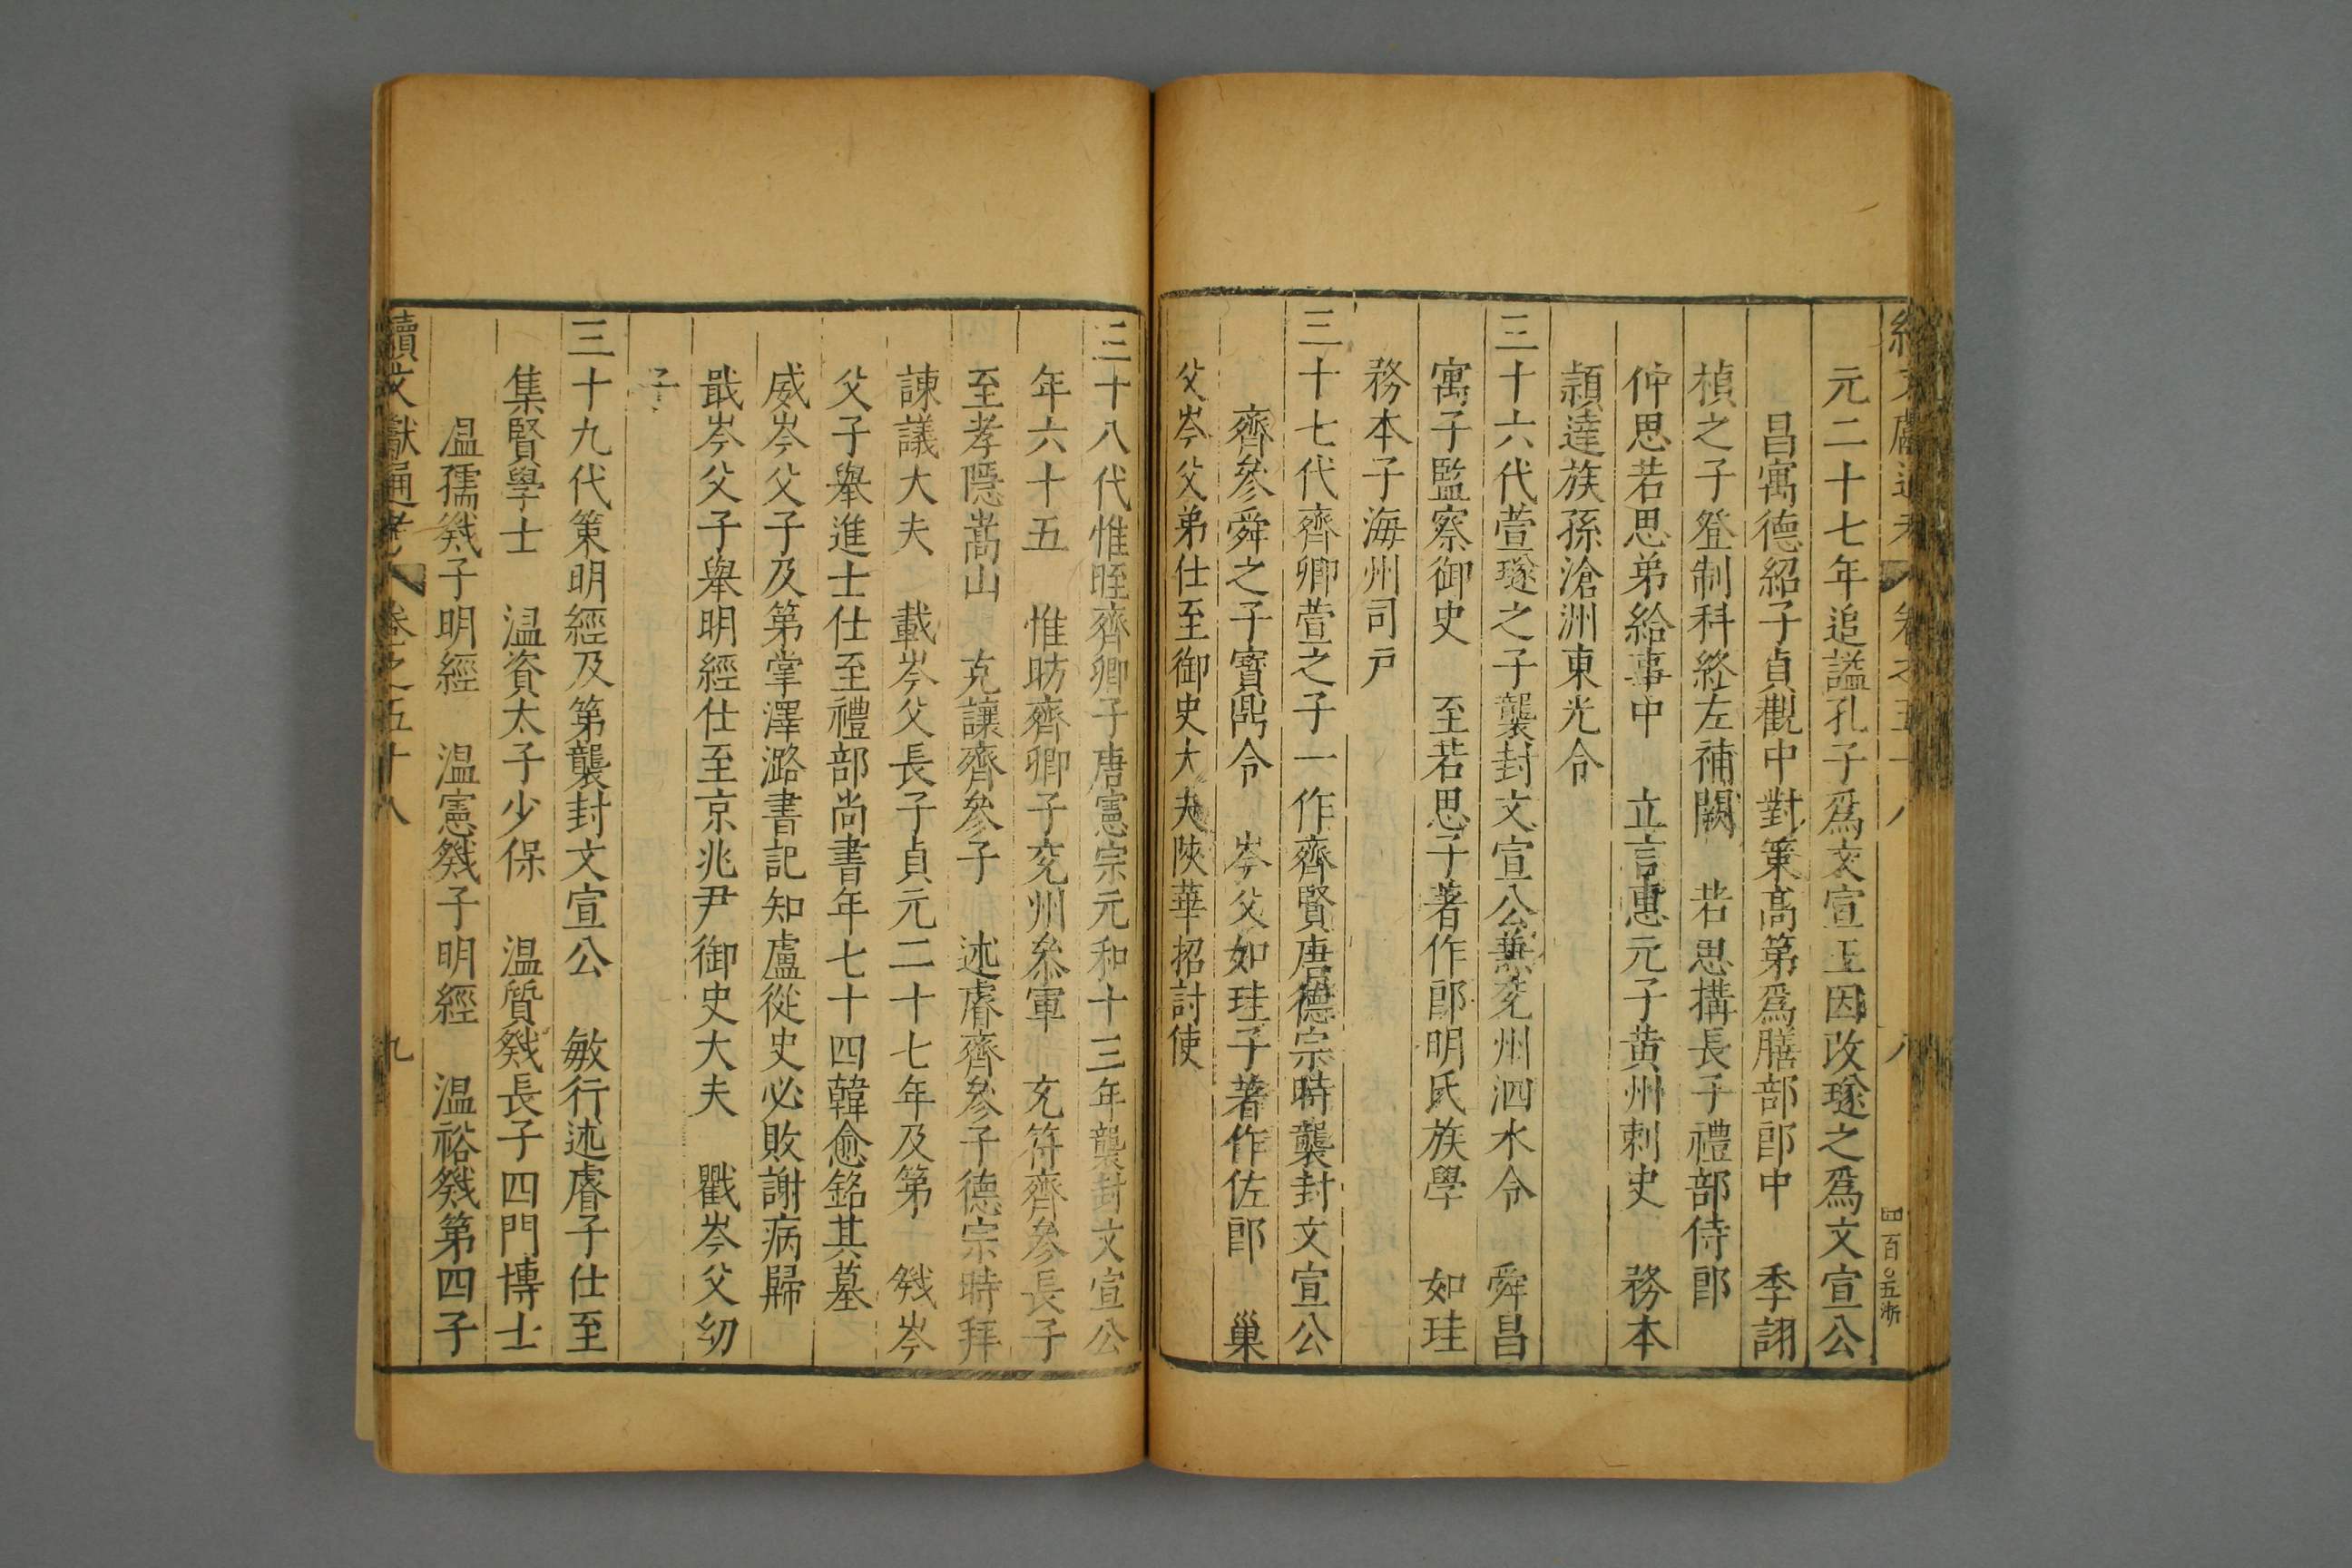 續文獻通考 卷之五十八 八 四百〇五浙
元二十七年追謚孔子爲文宣王因改璲之爲文宣公
昌寓德紹子貞觀中對策高第爲膳部郎中 季詡
楨之子登制科終左補闕 若思搆長子禮部侍郎
仲思若思弟給事中 立言惠元子黄州刺史 務本
頴達族孫滄洲東光令
三十六代萱璲之子襲封文宣公兼兖州泗水令 舜昌
寓子監察御史 至若思子著作郎明氏族學 如珪
務本子海州司戸
三十七代齊卿萱之子一作齊賢唐德宗時襲封文宣公
齊參舜之子寳鼎令 岑父如珪子著作佐郎 巢
父岑父弟仕至御史大夫陝華招討使
三十八代惟晊齊卿子唐憲宗元和十三年襲封文宣公
年六十五 惟昉齊卿子兖州叅軍 克符齊參長子
至孝隱嵩山 克讓齊參子 述睿齊參子德宗時拜
諫議大夫 載岑父長子貞元二十七年及第 戣岑
父子舉進士仕至禮部尚書年七十四韓愈銘其墓
威岑父子及第掌澤潞書記知盧從史必敗謝病歸
戢岑父子舉明經仕至京兆尹御史大夫 戵岑父幼
子
三十九代策明經及第襲封文宣公 敏行述睿子仕至
集賢學士 温資太子少保 温質戣長子四門博士
温孺戣子明經 温憲戣子明經 温裕戣第四子
續文獻通考 卷之五十八 九